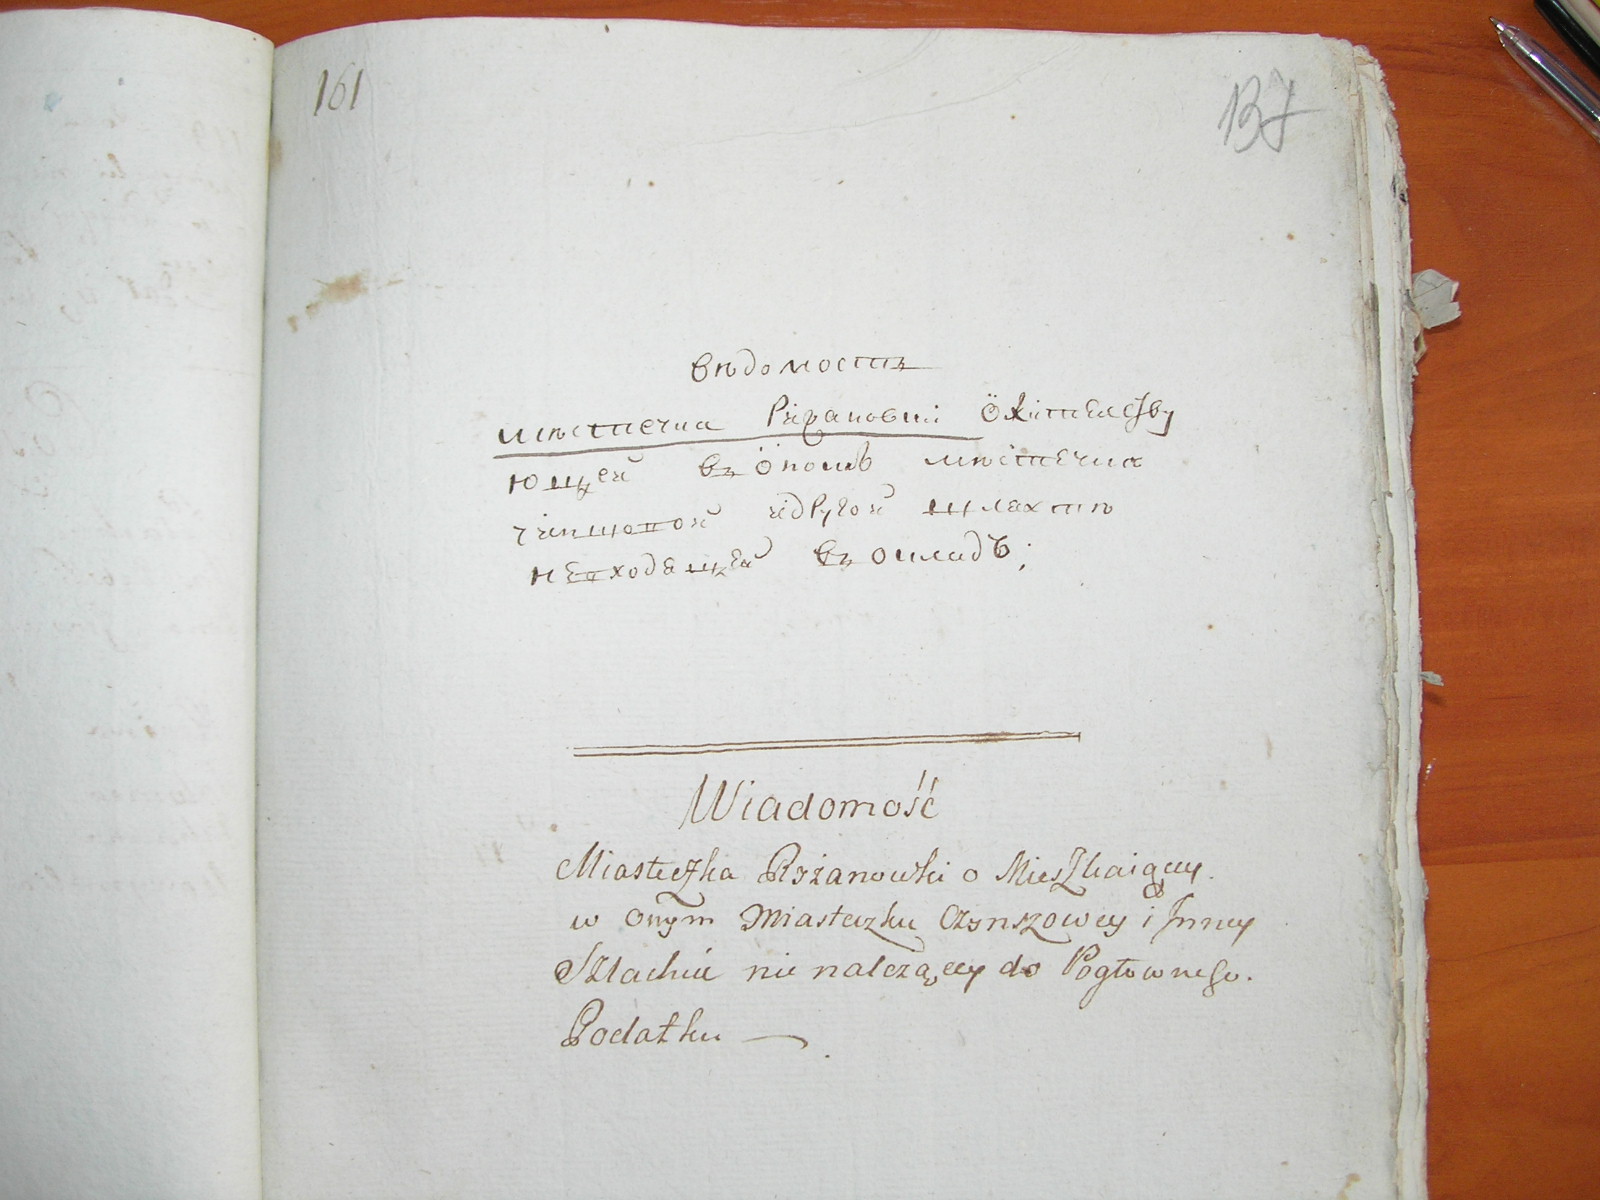 161
137
вѣдомость
мѣстечка Рижановки ожительству
ющей въ ономъ мѣстечкѣ
чиншовой идругой шляхтѣ
невходящей въ окладъ;
Wiadomość
Miasteczka Ryżanowki o Mieszkaiący
w onym Miasteczku Czynszowey i Inney
Szlachcie nie nalezącey do Pogłownego.
Podatku —